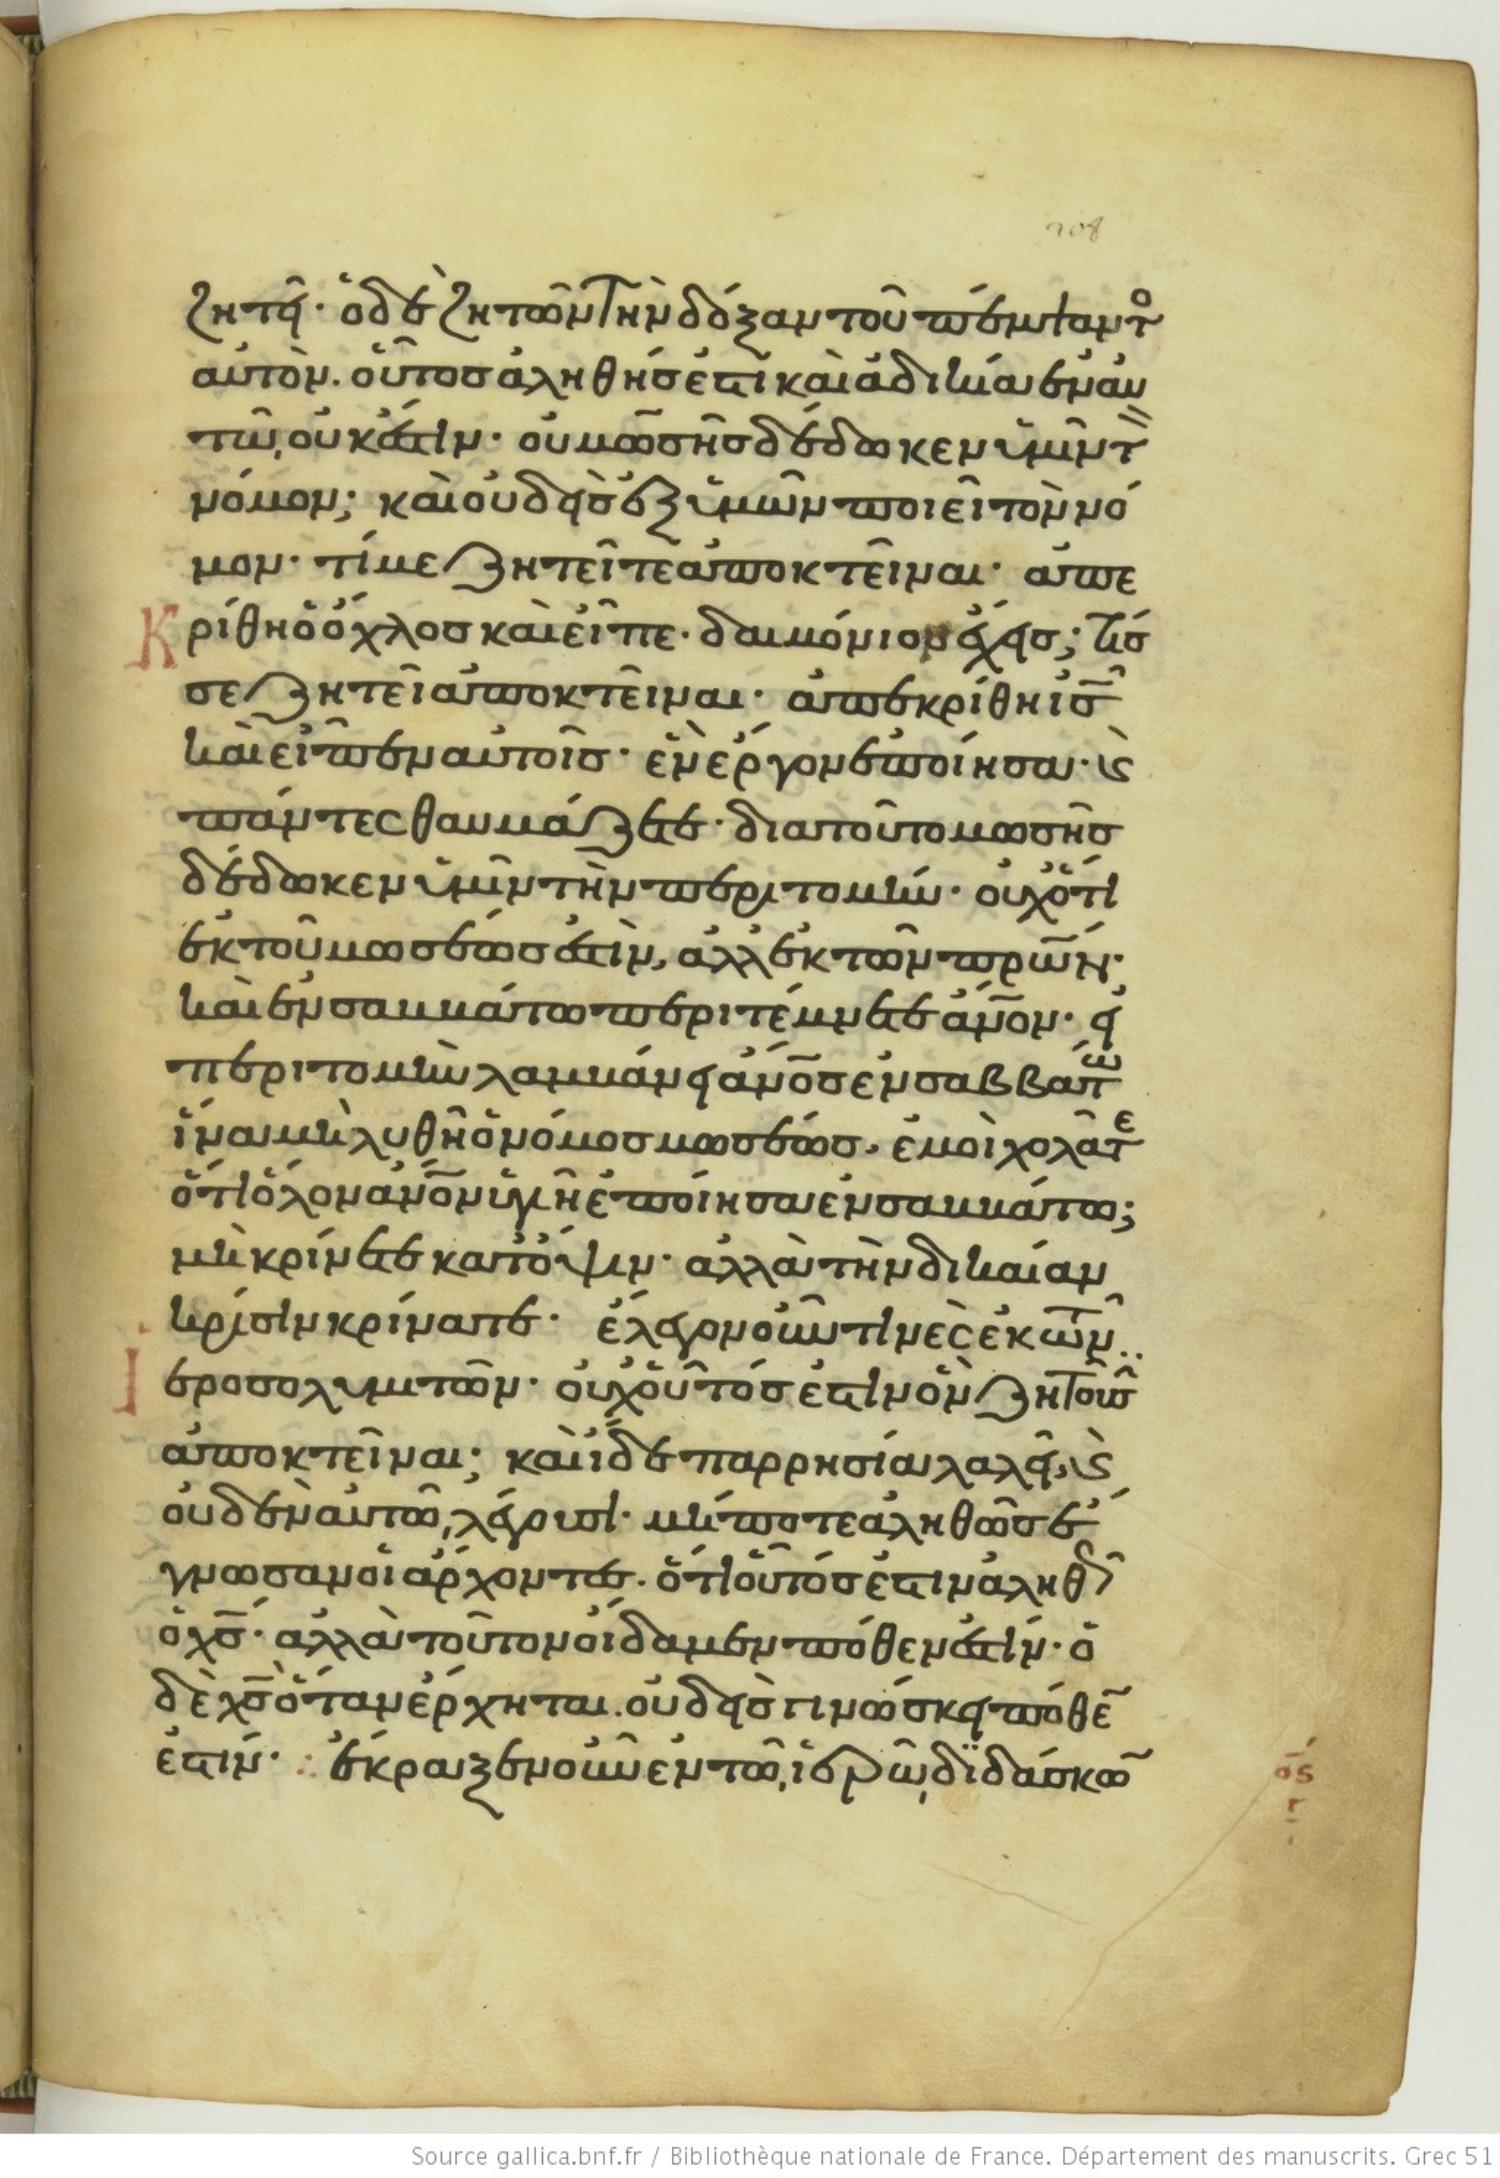 208
ζητεῖ· ὁ δὲ ζητῶν τὴν δόξαν τοῦ πέμψαντο
αὐτὸν. οὗτος ἀληθής ἐστι καὶ ἀδικία ἐν αυ
τῶ, οὐκ ἔστιν· οὐ μωσῆς δέδωκεν ὑμῖν τ
νόμον; καὶ οὐδεὶς ἐξ ὑμῶν ποιεῖ τὸν νό
μον· τί με ζητεῖτε ἀποκτεῖναι· ἀπε
κρίθη ὁ ὄχλος καὶ εἶπε· δαιμόνιον ἔχεις; τίς
σε ζητεῖ ἀποκτεῖναι· ἀπεκρίθη ὁ ις
καὶ εἶπεν αὐτοῖς· ἓν ἔργον ἐποίησα· κ(αὶ)
πάντες θαυμάζετε· διατοῦτο μωσῆς
δέδωκεν ὑμῖν τὴν περιτομήν· οὐχ ὅτι
ἐκ τοῦ μωσέως ἐστὶν, ἀλλ' ἐκ τῶν πρων·
καὶ ἐν σαββάτω περιτέμνετε ἄνον· εἰ
περιτομὴν λαμβάνει ἄνος ἐν σαββάτω
ἵνα μὴ λυθῆ ὁ νόμος μωσέως, ἐμοὶ χολᾶτε
ὅτι ὅλον ἄνον ὑγιῆ ἐποίησα ἐν σαββάτω;
μὴ κρίνετε κατ' ὄψιν· ἀλλὰ τὴν δικαίαν
κρίσιν κρίνατε· ἔλεγον οὖν τινὲς ἐκ τῶν
ιεροσολυμιτῶν· οὐχ οὗτός ἐστιν ὃν ζητοῦσιν
ἀποκτεῖναι; καὶ ἴδε παρρησία λαλεῖ, κ(αὶ)
οὐδὲν αὐτῶ, λέγουσι· μήποτε ἀληθῶς ἔ
γνωσαν οἱ ἄρχοντες. ὅτι οὗτός ἐστιν ἀληθῶς
ὁ χς· ἀλλὰ τοῦτον οἴδαμεν πόθεν ἐστίν· ὁ
δὲ χς ὅταν ἔρχηται. οὐδεὶς γινώσκει πόθε
ἐστίν· ἔκραξεν οὖν ἐν τῶ, ἱερῶ, διδάσκω
ος
γ
Source gallica.bnf.fr / Bibliothèque nationale de France. Département des manuscrits. Grec 51